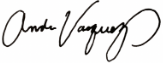 Andre Vazquez